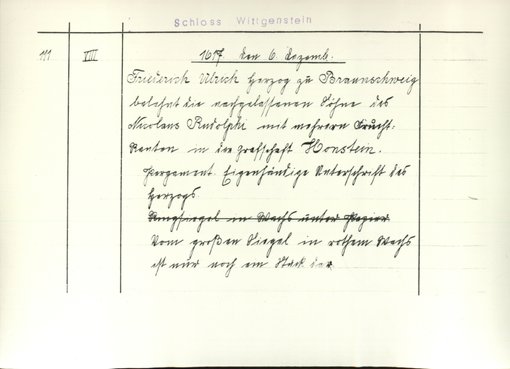 Schloss Wittgenstein
111 VIII 1617 den 6. Dezemb.
Friederich Ulrich Herzog zu Braunschweig
belehnt die nachgelassenen Söhne des
Nicolaus Rudolphi mit mehrern Frucht:
Renten in der Grafschaft Honstein.
Pergament. Eigenhändige Unterschrift des
Herzogs.
Ringsiegel in Wachs unter Papier
Vom großen Siegel in rothem Wachs
ist nur noch ein Stück da.